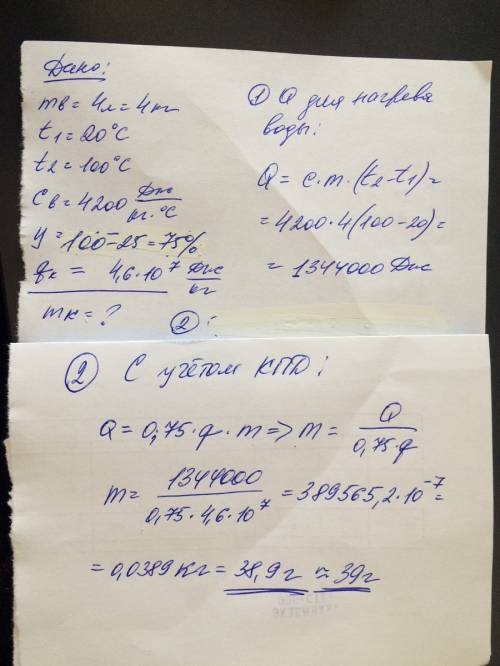 Дано:
mв = 4л = 4кг
t1 = 20°C
t2 = 100°C
Cв = 4200 Дж/кг·°C
η = 100-25 = 75%
qк = 4,6·10⁷ Дж/кг
mк = ?
① Q для нагрева
воды:
Q = c·m·(t2-t1) =
= 4200·4(100-20) =
= 1344000 Дж
② :
② С учётом КПД:
Q = 0,75·q·m => m = Q/0,75·q
m = 1344000/0,75·4,6·10⁷ = 389565,2·10⁻⁷ =
= 0,0389 кг = 38,9 г ≈ 39 г